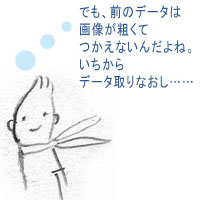 でも、前のデータは
画像が粗くて
つかえないんだよね。
いちから
データ取りなおし……